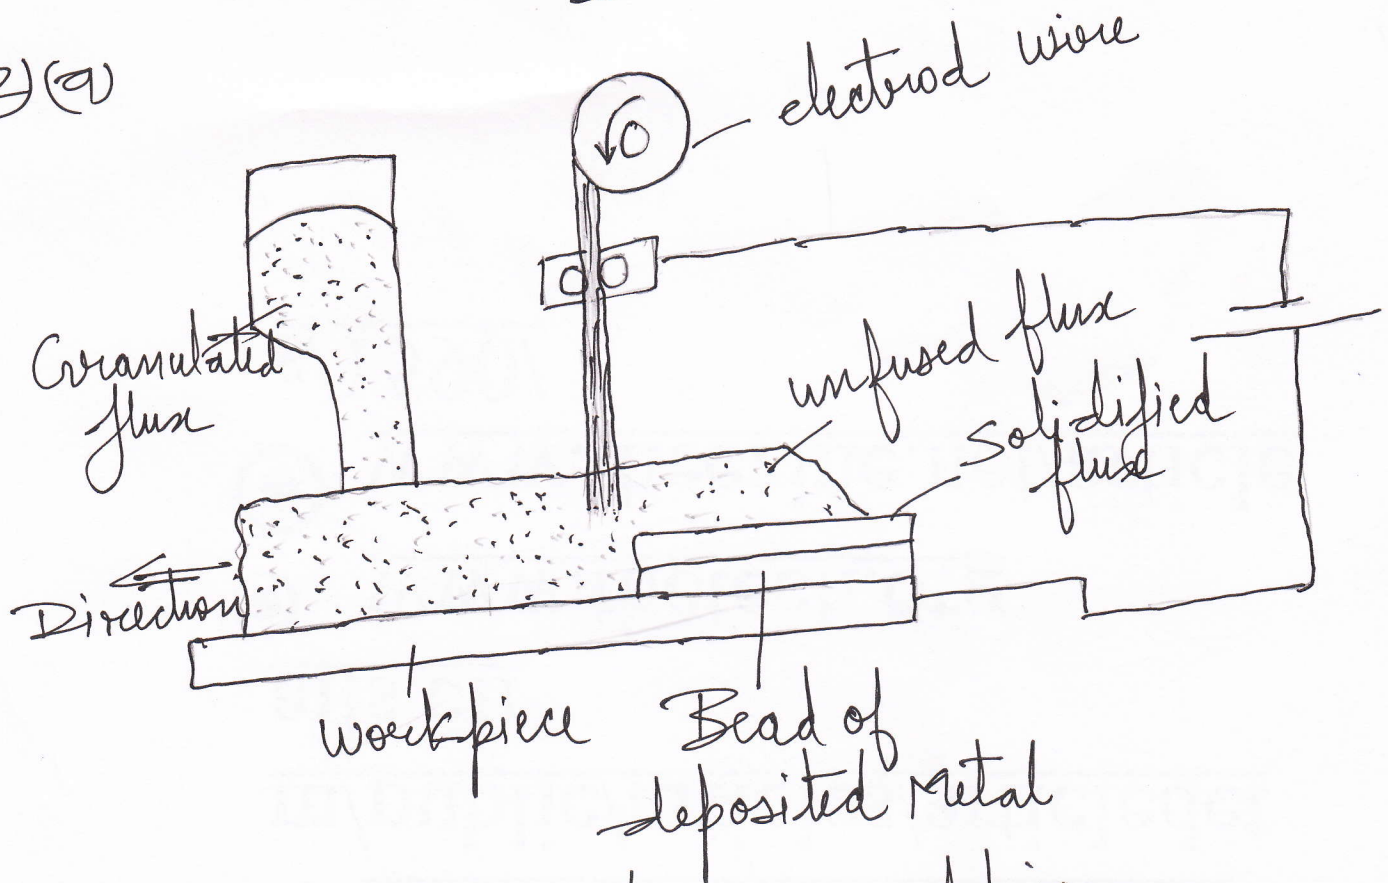 2)(a)
electrod wire
Granulated
flux
unfused flux
solidified
flux
Direction
workpiece
Bead of
deposited Metal